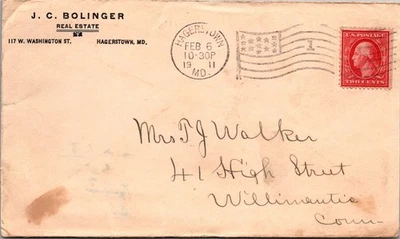 J. C. BOLINGER
REAL ESTATE
117 W. WASHINGTON ST. HAGERSTOWN, MD.
HAGERSTOWN
FEB 6
10-30P
19 11
MD.
1
U.S. POSTAGE
TWO CENTS
Mrs T J Walker
41 High Street
Willimantic
Conn-